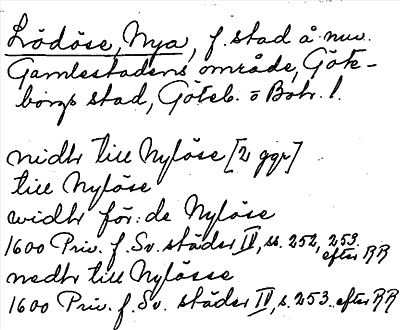 Lödöse, Nya, f. stad å nuv.
Gamlestadens område, Göte-
borgs stad, Göteb. o Boh. l.
nidtr till Nylöse [2 ggr]
till Nylöse
widtr för: de Nylöse
1600 Priv. f. Sv. städer IV, ss. 252, 253. efter RR
nedtr till Nylösse
1600 Priv. f. Sv. städer IV, s. 253. efter RR